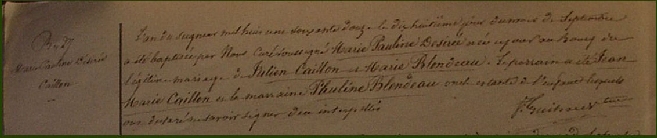 B. 27
Marie Pauline Désirée
Caillon
L'an du Seigneur mil huit cent soixante douze le dix huitième jour du mois de Septembre
a été baptisée par Nous Curé soussigné Marie Pauline Désirée née ce jour au bourg du
légitime mariage de Julien Caillon et Marie Blondeau. Le parrain a été Jean
Marie Caillon et la marraine Pauline Blondeau oncle et tante de l'enfant lesquels
ont déclaré ne savoir signer de ce interpellés